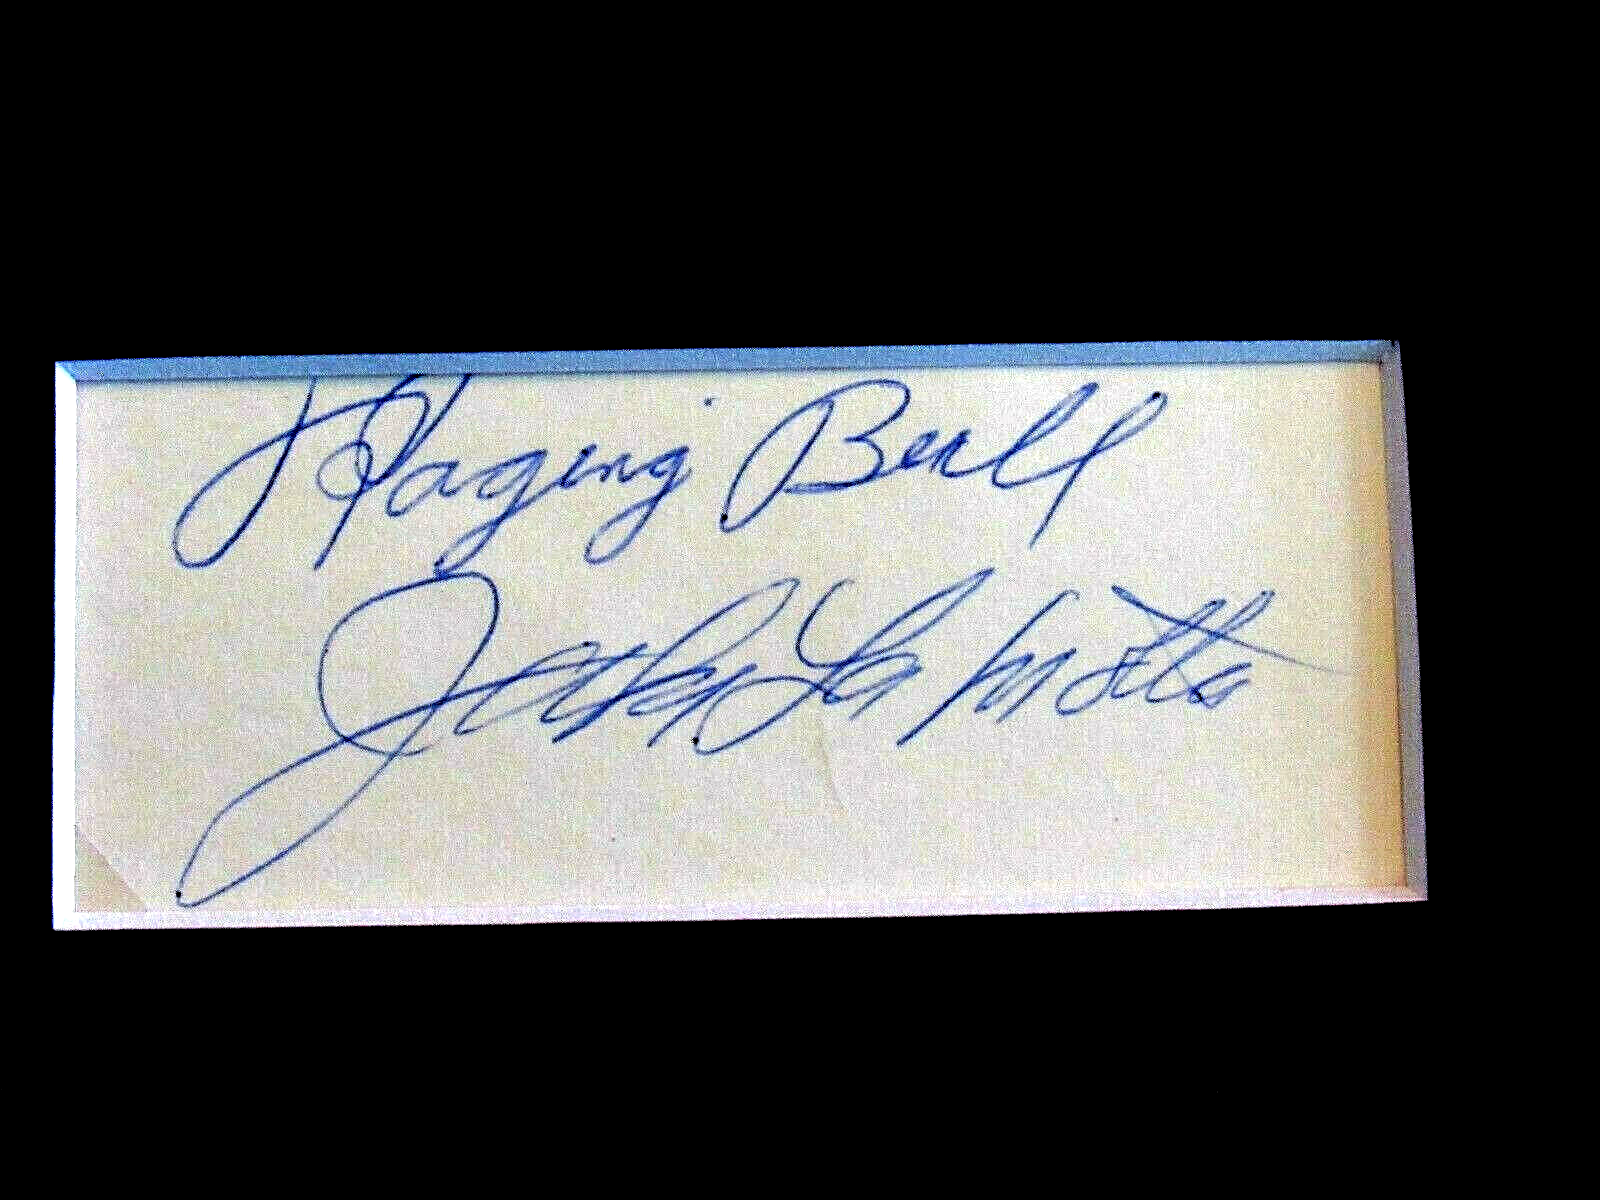 Raging Bull
Jake La Motta